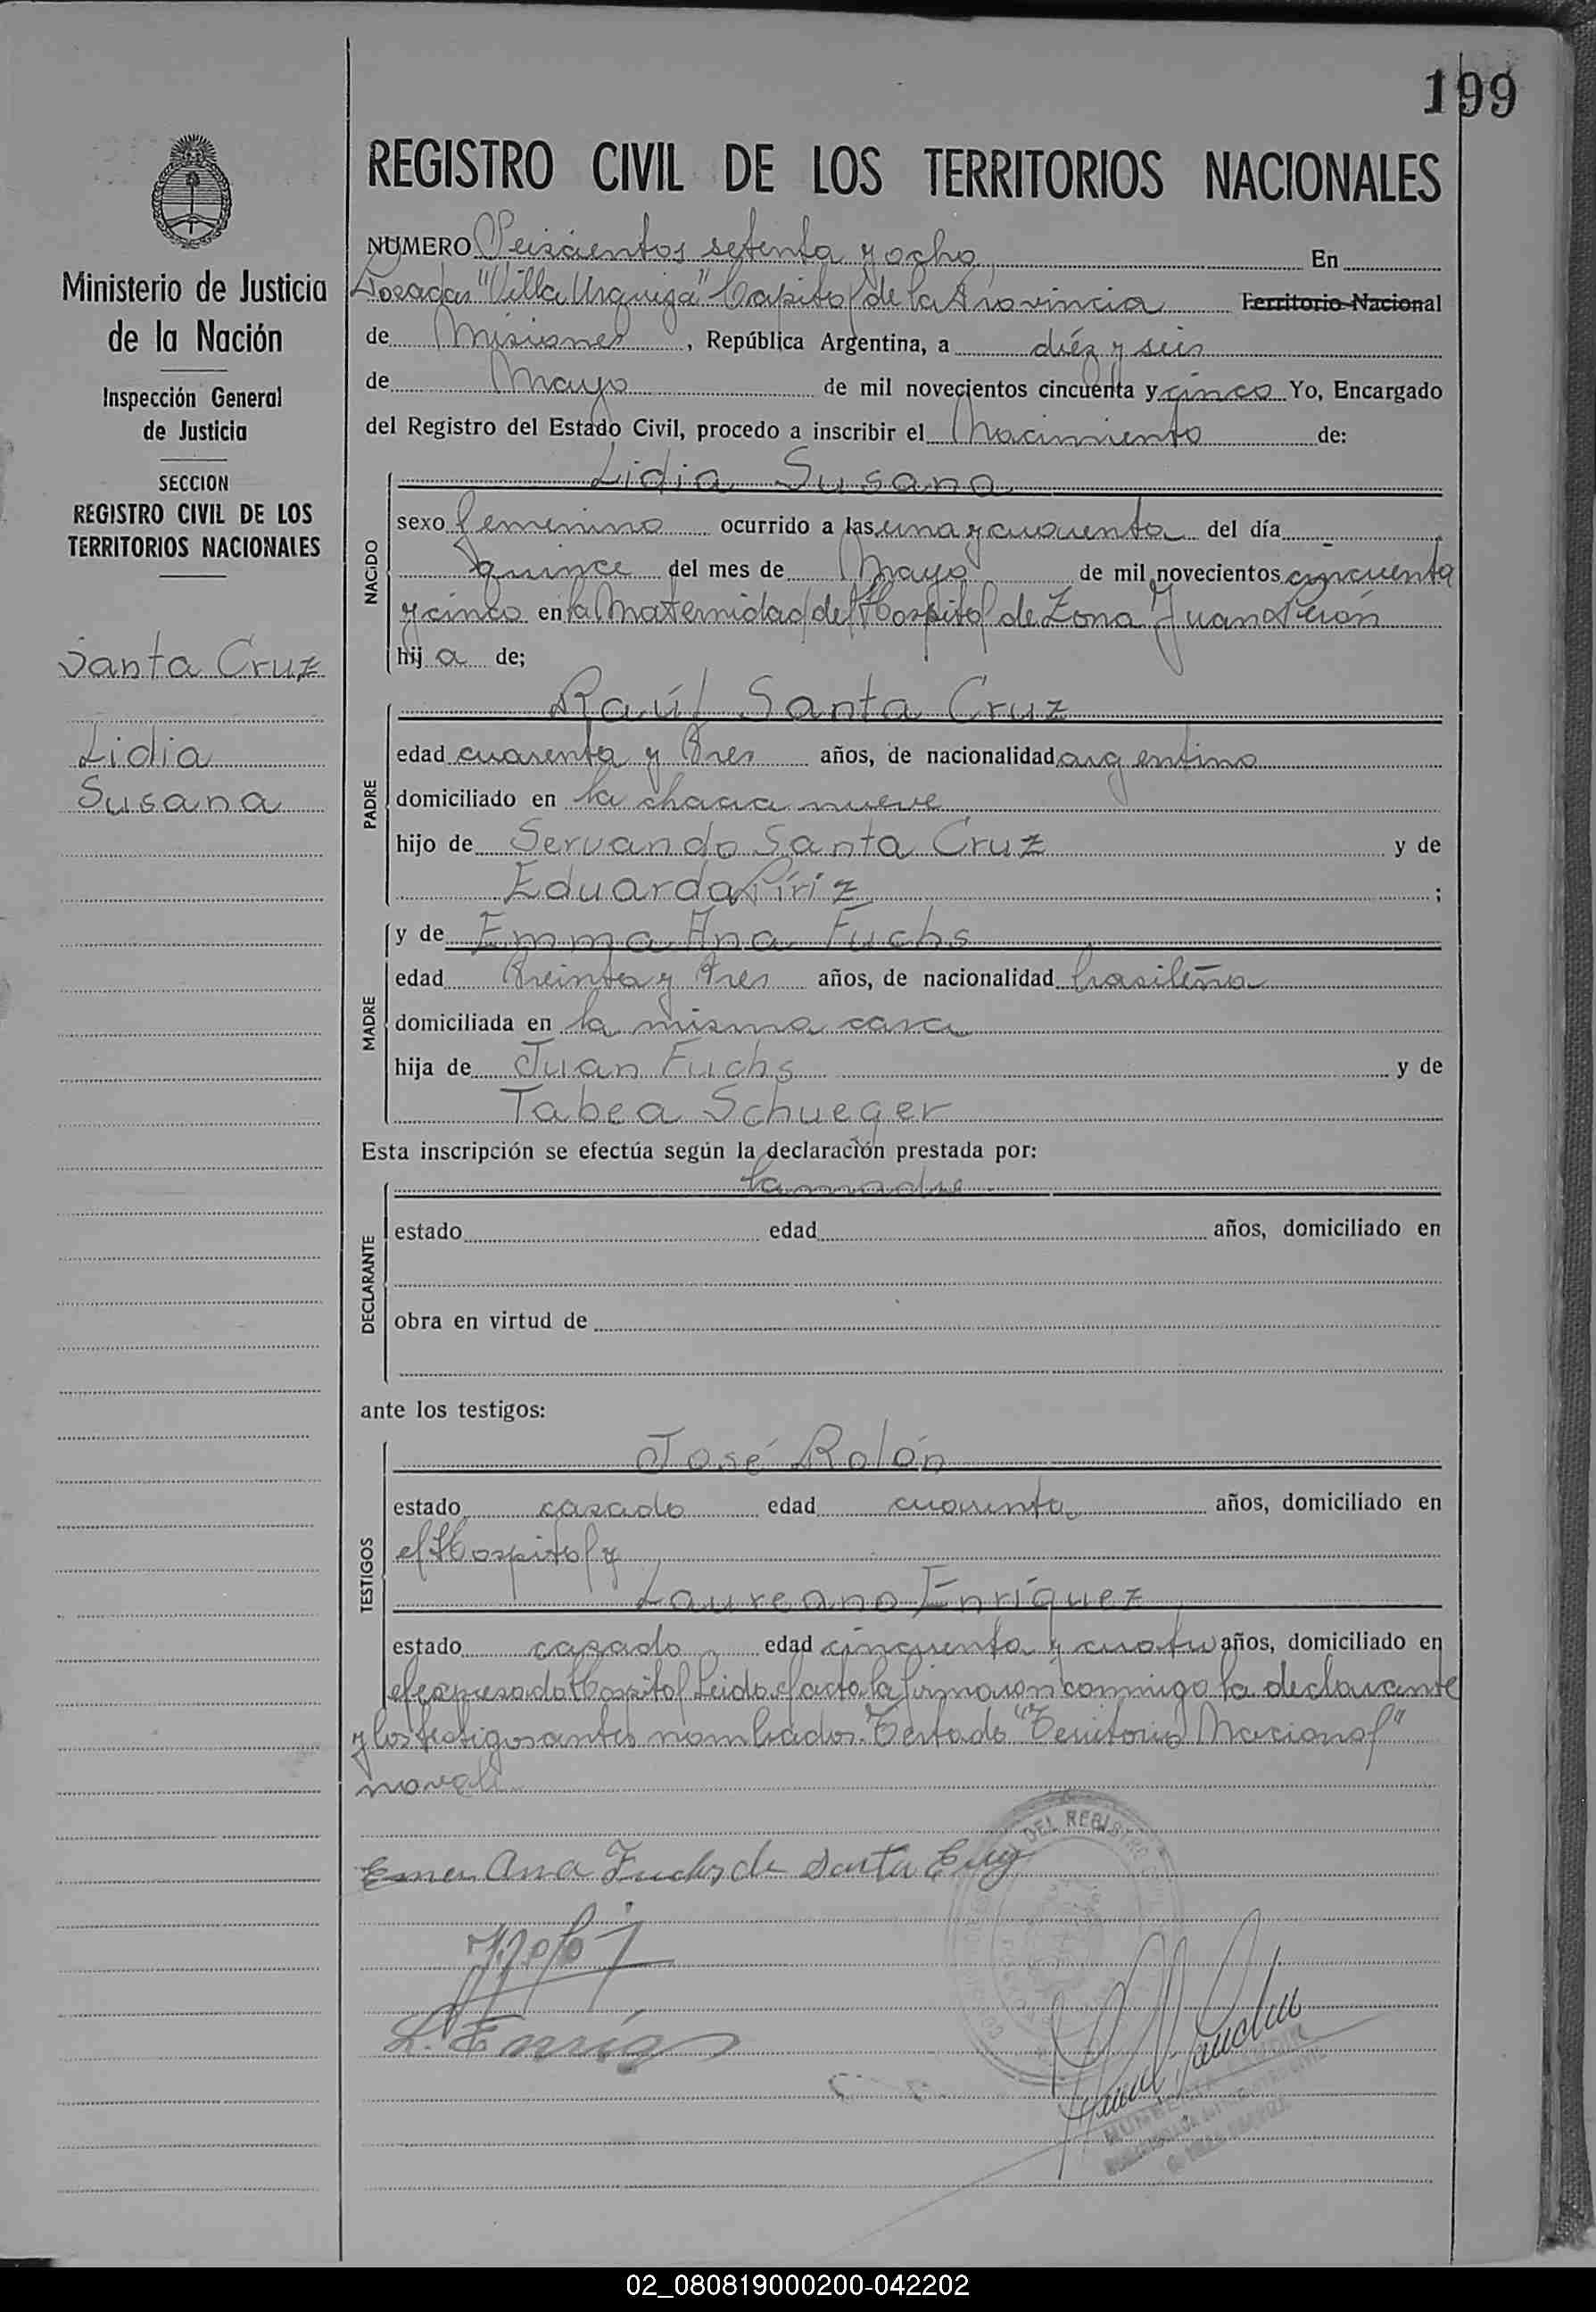 199
REGISTRO CIVIL DE LOS TERRITORIOS NACIONALES
Ministerio de Justicia
de la Nación
Inspección General
de Justicia
SECCION
REGISTRO CIVIL DE LOS
TERRITORIOS NACIONALES
Santa Cruz
Lidia
Susana
NUMERO Seiscientos setenta y ocho, En
Posadas "Villa Urquiza" Capital de la Provincia Territorio Nacional
de Misiones, República Argentina, a diéz y seis
de Mayo de mil novecientos cincuenta y cinco Yo, Encargado
del Registro del Estado Civil, procedo a inscribir el Nacimiento de:
NACIDO
Lidia Susana
sexo femenino ocurrido a las una y cuarenta del día
quince del mes de Mayo de mil novecientos cincuenta
y cinco en la Maternidad del Hospital de Zona Juan Perón
hij a de;
PADRE
Raúl Santa Cruz
edad cuarenta y tres años, de nacionalidad argentino
domiciliado en la chacra nueve
hijo de Servando Santa Cruz y de
Eduarda Píriz ;
MADRE
y de Emma Ana Fuchs
edad treinta y tres años, de nacionalidad brasileña
domiciliada en la misma casa
hija de Juan Fuchs y de
Tabea Schueger
Esta inscripción se efectúa según la declaración prestada por:
DECLARANTE
la madre
estado edad años, domiciliado en
obra en virtud de
ante los testigos:
TESTIGOS
José Rolón
estado casado edad cuarenta años, domiciliado en
el Hospital y
Laureano Enríquez
estado casado edad cincuenta y cuatro años, domiciliado en
el expresado Hospital Leido el acta la firmaron conmigo la declarante
y los testigos antes nombrados. Testado "Territorio Nacional"
no vale
DEL REGIS
Emma Ana Fuchs de Santa Cruz
L. Enríq
02_080819000200-042202